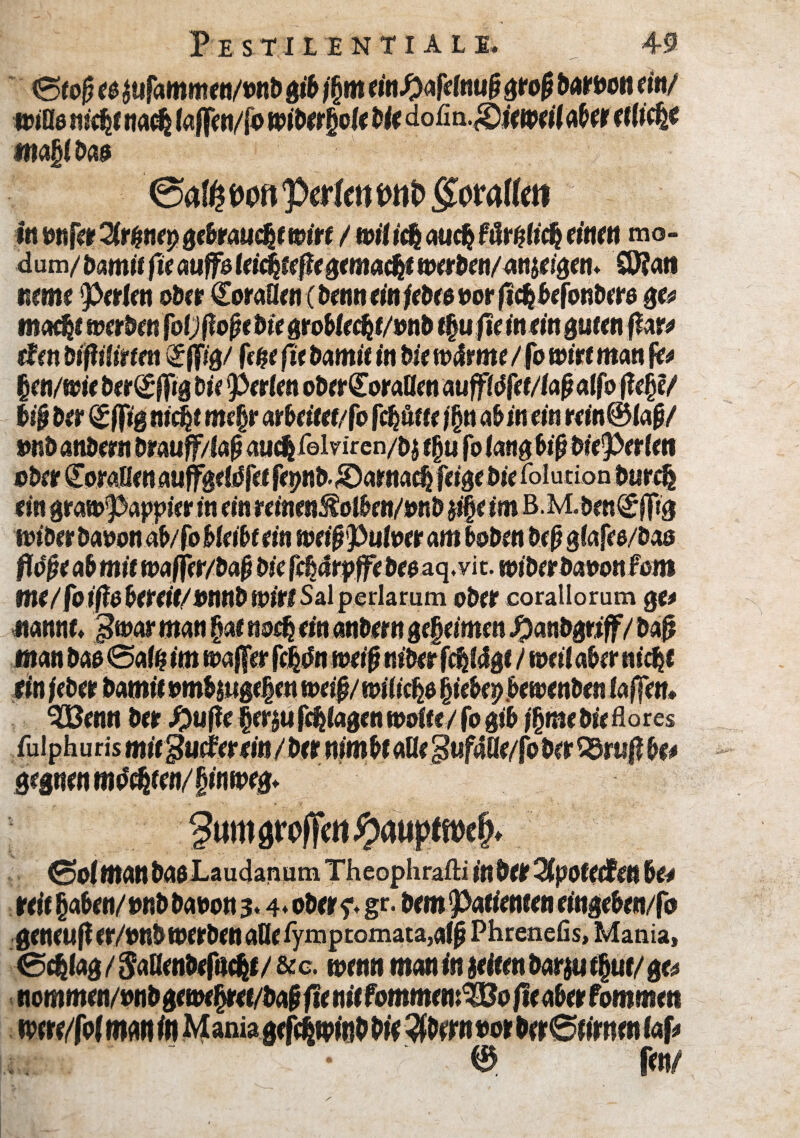 PESTILENTIALE. 49
Stoß es zusammen/vnd gib jhm ein Haselnuß groß daruon ein/
wills nicht nach lassen/so widerhole die dosin. Dieweil aber etliche
mahl das
Saltz von Perlen vnd Corallen
in vnser Artzney gebraucht wirt / wil ich auch fürtzlich einen mo-
dum/damit sie auffs leichteste gemacht werden/anzeigen. Man
neme Perlen oder Corallen (denn ein jedes vor sich besonders ge⸗
macht werden sol) stoße die groblecht/vnd thu sie in ein guten star⸗
cken distilirten Essig/ setze sie damit in die wärme / so wirt man se⸗
hen/wie der Essig die Perlen oder Corallen aufflöset/laß also stehe/
biß der Essig nicht mehr arbeitet/so schütte jhn ab in ein rein Glaß/
vnd andern drauff/laß auch solviren/dz thu so lang biß die Perlen
oder Corallen auffgelöset seynd. Darnach seige die solution durch
ein graw Pappier in ein reinen Kolben/vnd zihe im B.M. den Essig
wider davon ab/so bleibt ein weiß Pulver am boden deß glases/das
flöße ab mit wasser/daß die schärpffe des aq.vit. wider davon kom
me/so ists bereit/vnnd wirt Sal perlarum oder corallorum ge⸗
nannt. Zwar man hat noch ein andern geheimen Handgriff/ daß
man das Saltz im wasser schön weiß nider schlägt / weil aber nicht
ein jeder damit vmbzugehen weiß/wil ichs hiebey bewenden lassen.
Wenn der Huste herzu schlagen wolte/so gib jhme die flores
sulphuris mit Zucker ein / der nimbt alle Zufälle/so der Brust be⸗
gegnen möchten/hinweg.
Zum grossen Hauptweh.
Sol man das Laudanum Theophrasti in der Apotecken be⸗
reit haben/vnd davon 3. 4. oder 5. gr. dem Patienten eingeben/so
geneust er/vnd werden alle symptomata,alß Phrenesis, Mania,
Schlag / Fallendesucht/ &c. wenn man in zeiten darzu thut/ge⸗
nommen/vnd gewehret/daß sie nit kommen: Wo sie aber kommen
were/sol man in Mania geschwind die Adern vor der Stirnen las⸗
G sen/